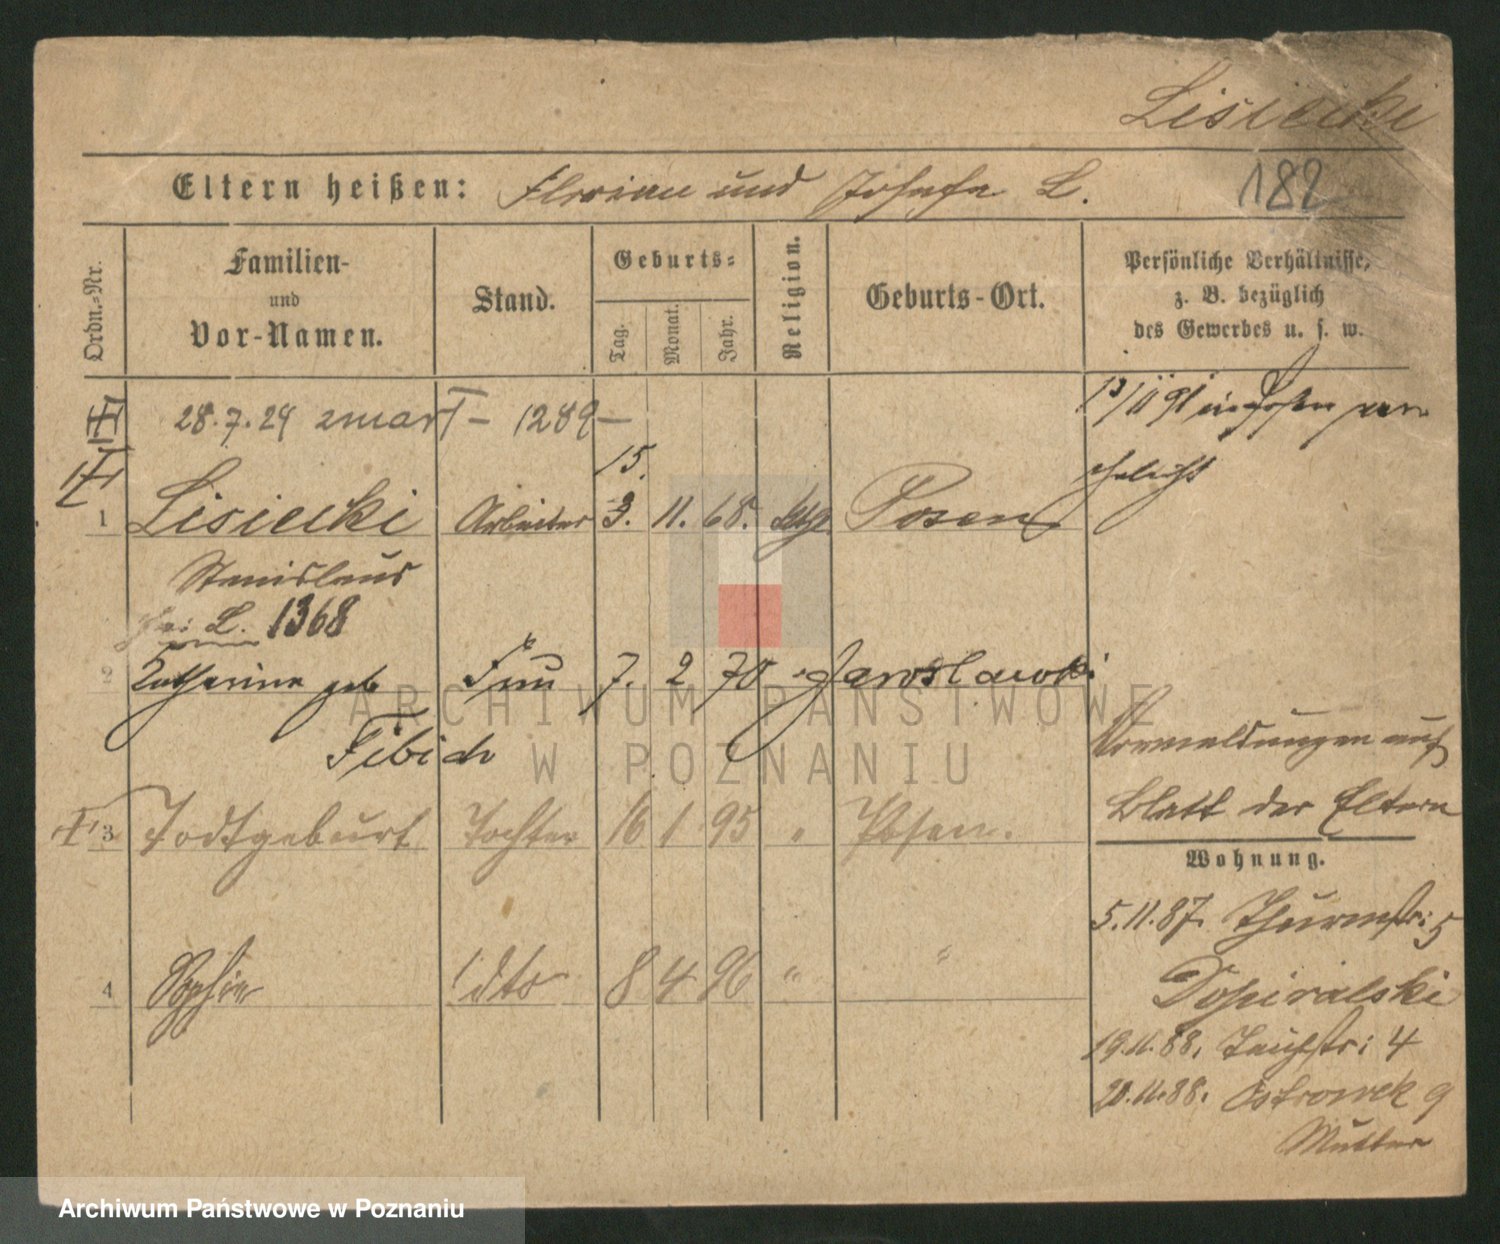 Lisiecki
Eltern heißen: Florian und Josefa L.
182
Ordn.-Nr.
Familien-
und
Vor-Namen.
Stand.
Geburts-
Tag.
Monat.
Jahr.
Religion.
Geburts-Ort.
Persönliche Verhältnisse,
z. B. bezüglich
des Gewerbes u. s. w.
28.7.24 zmarł - 1289 -
13/11 91 in Posen ver
ehelicht
15.
1 Lisiecki Arbeiter 3. 11. 68. kath. Posen
Stanislaus
L. 1368
2 Katharine geb Frau 7. 2 70 Jaroslawki
Fibich
ARCHIWUM PAŃSTWOWE
W POZNANIU
Anmeldungen auf
Blatt der Eltern
3 Todtgeburt Tochter 16 1 95 " Posen.
Wohnung.
5.11.87. Thurmstr: 5
Dopiralski
4 Sophie dto 8 4 96 " "
19.11.88. Teichstr: 4
20.11.88. Ostrowek 9
Mutter
Archiwum Państwowe w Poznaniu